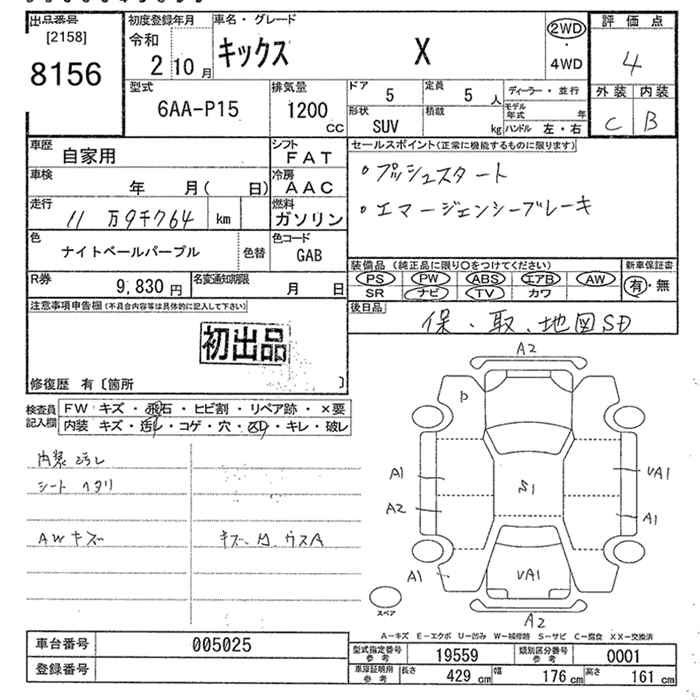 出品番号 初度登録年月 車名・グレード 評価点
[2158] 令和 キックス X 2WD
8156 2 10月 4WD 4
型式 排気量 ドア 5 定員 5人 ディーラー・並行 外装 内装
6AA-P15 1200 cc 形状 SUV 積載 kg モデル年式 年 ハンドル 左・右 C B
車歴 自家用 シフト FAT セールスポイント(正常に機能するものに限ります)
車検 年 月( 日) 冷房 AAC ・プッシュスタート
走行 11万9千764 km 燃料 ガソリン ・エマージェンシーブレーキ
色 ナイトベールパープル 色替 色コード GAB
装備品(純正品に限り○をつけてください) 新車保証書
R券 9,830円 名変通知期限 月 日 PS PW ABS エアB AW 有・無
SR ナビ TV カワ
注意事項申告欄(不具合内容等は具体的に記入して下さい) 後日品 保・取・地図SD
初出品
修復歴 有〔箇所 〕
検査員記入欄 FW キズ・飛石・ヒビ割・リペア跡・×要
内装 キズ・汚レ・コゲ・穴・スレ・キレ・破レ
内装汚レ
シート ヘタリ
AWキズ キズ、凹、ウスA
A2
A1 UA1
S1
A2 A1
A1 UA1
スペア
A2
A-キズ E-エクボ U-凹み W-補修跡 S-サビ C-腐食 XX-交換済
車台番号 005025 型式指定番号 参考 19559 類別区分番号 参考 0001
登録番号 車庫証明用 参考 長さ 429 cm 幅 176 cm 高さ 161 cm